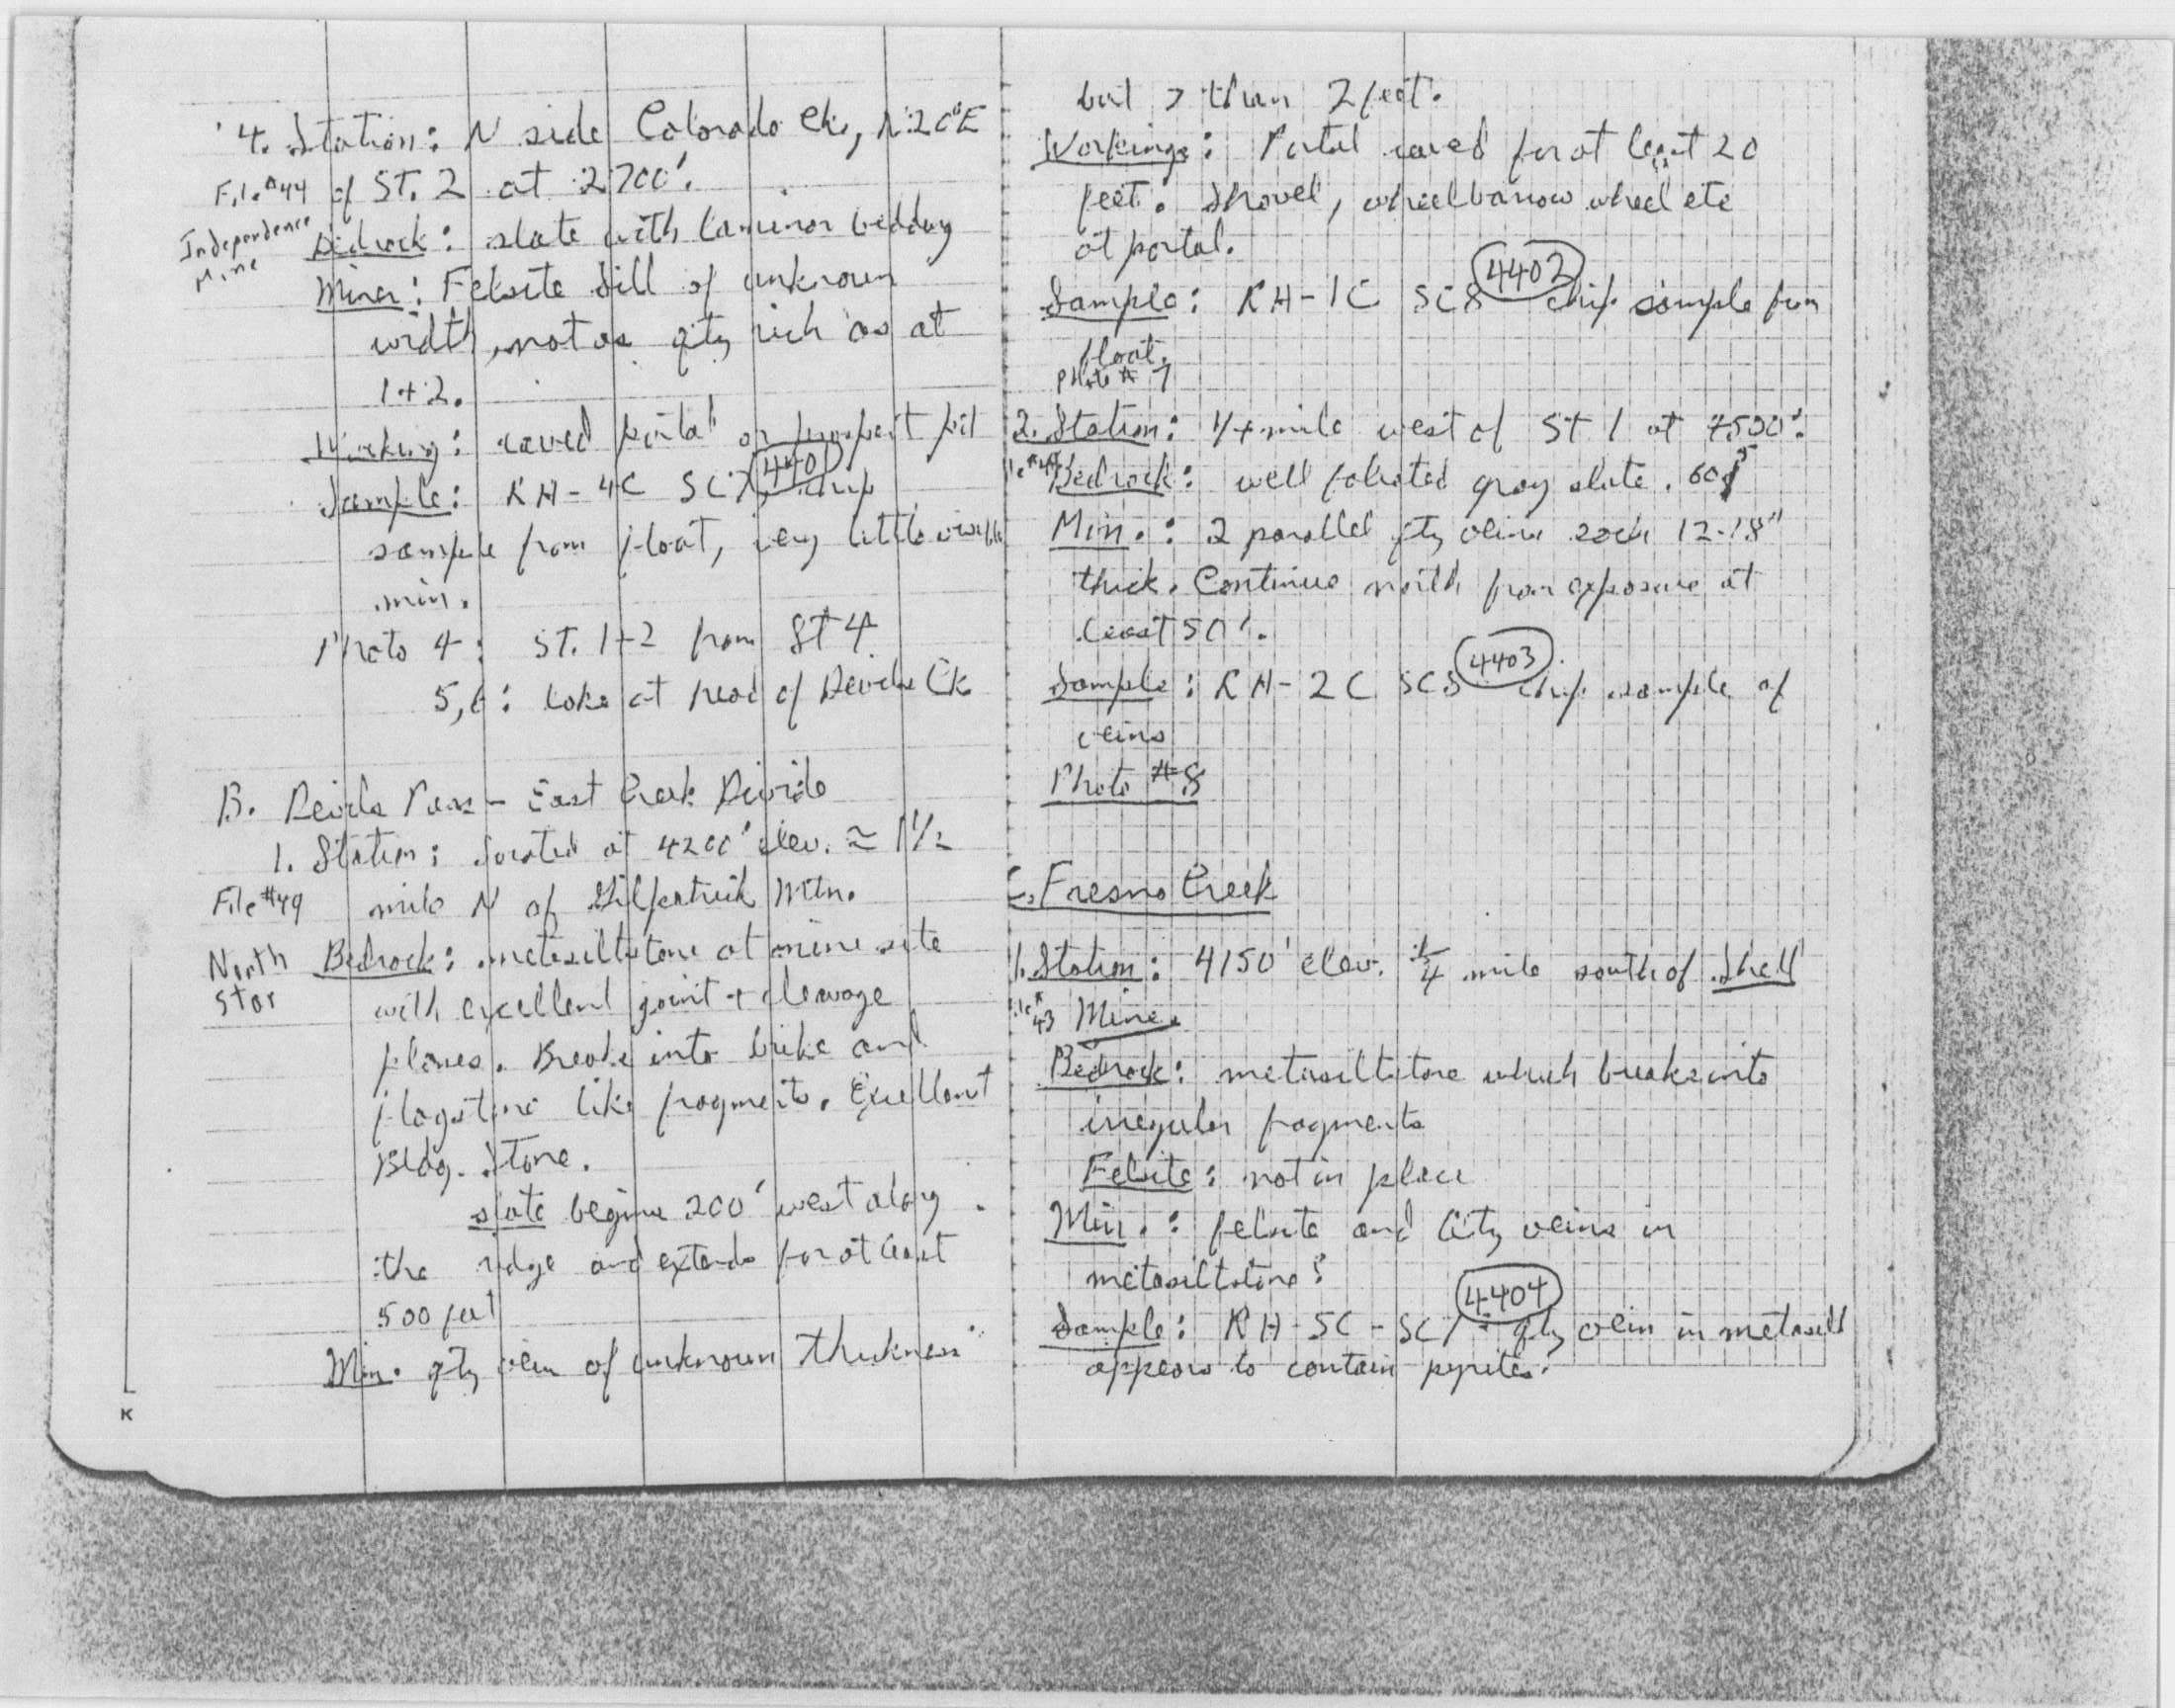 4. Station: N side Colorado Ck, N20°E
File #44 of ST. 2 at 2700'.
Independence Mine
Bedrock: slate with laminar bedding
Miner: Felsite Sill of unknown
width, not as qtz rich as at
1+2.
Working: caved portal or prospect pit
4401
Sample: RH-4C SC7, chip
sample from float, very little visible
min.
Photo 4: ST. 1+2 from ST 4
5,6: lake at head of Devils Ck
B. Devils Pass - East Creek Divide
1. Station: located at 4200' elev. ≈ 1 1/2
File #49 mile N of Gilpatrick Mtn.
North Star
Bedrock: metasiltstone at mine site
with excellent joint + cleavage
planes. Breaks into brike and
flagstone like fragments. Excellent
Bldg. Stone.
slate begins 200' west along
the ridge and extends for at least
500 feet
Min. qtz vein of unknown thickness
but > than 2 feet.
Workings: Portal caved for at least 20
feet. Shovel, wheelbarrow wheel etc
at portal.
4402
Sample: RH-1C SC8 chip sample from
float.
Photo # 7
2. Station: 1/4 mile west of ST 1 at 4500'.
Bedrock: well foliated gray slate. 60
Min.: 2 parallel qtz veins each 12-18"
thick. Continue north from exposure at
least 50'.
4403
Sample: RH-2C SC8 chip sample of
veins
Photo #8
C. Fresno Creek
1. Station: 4150' elev. 1/4 mile south of Shell
43 Mine.
Bedrock: metasiltstone which breaks into
irregular fragments
Felsite: not in place
Min.: felsite and Qtz veins in
metasiltstone?
4404
Sample: RH-5C-SC7 - qtz vein in metasilt
appears to contain pyrite.
K